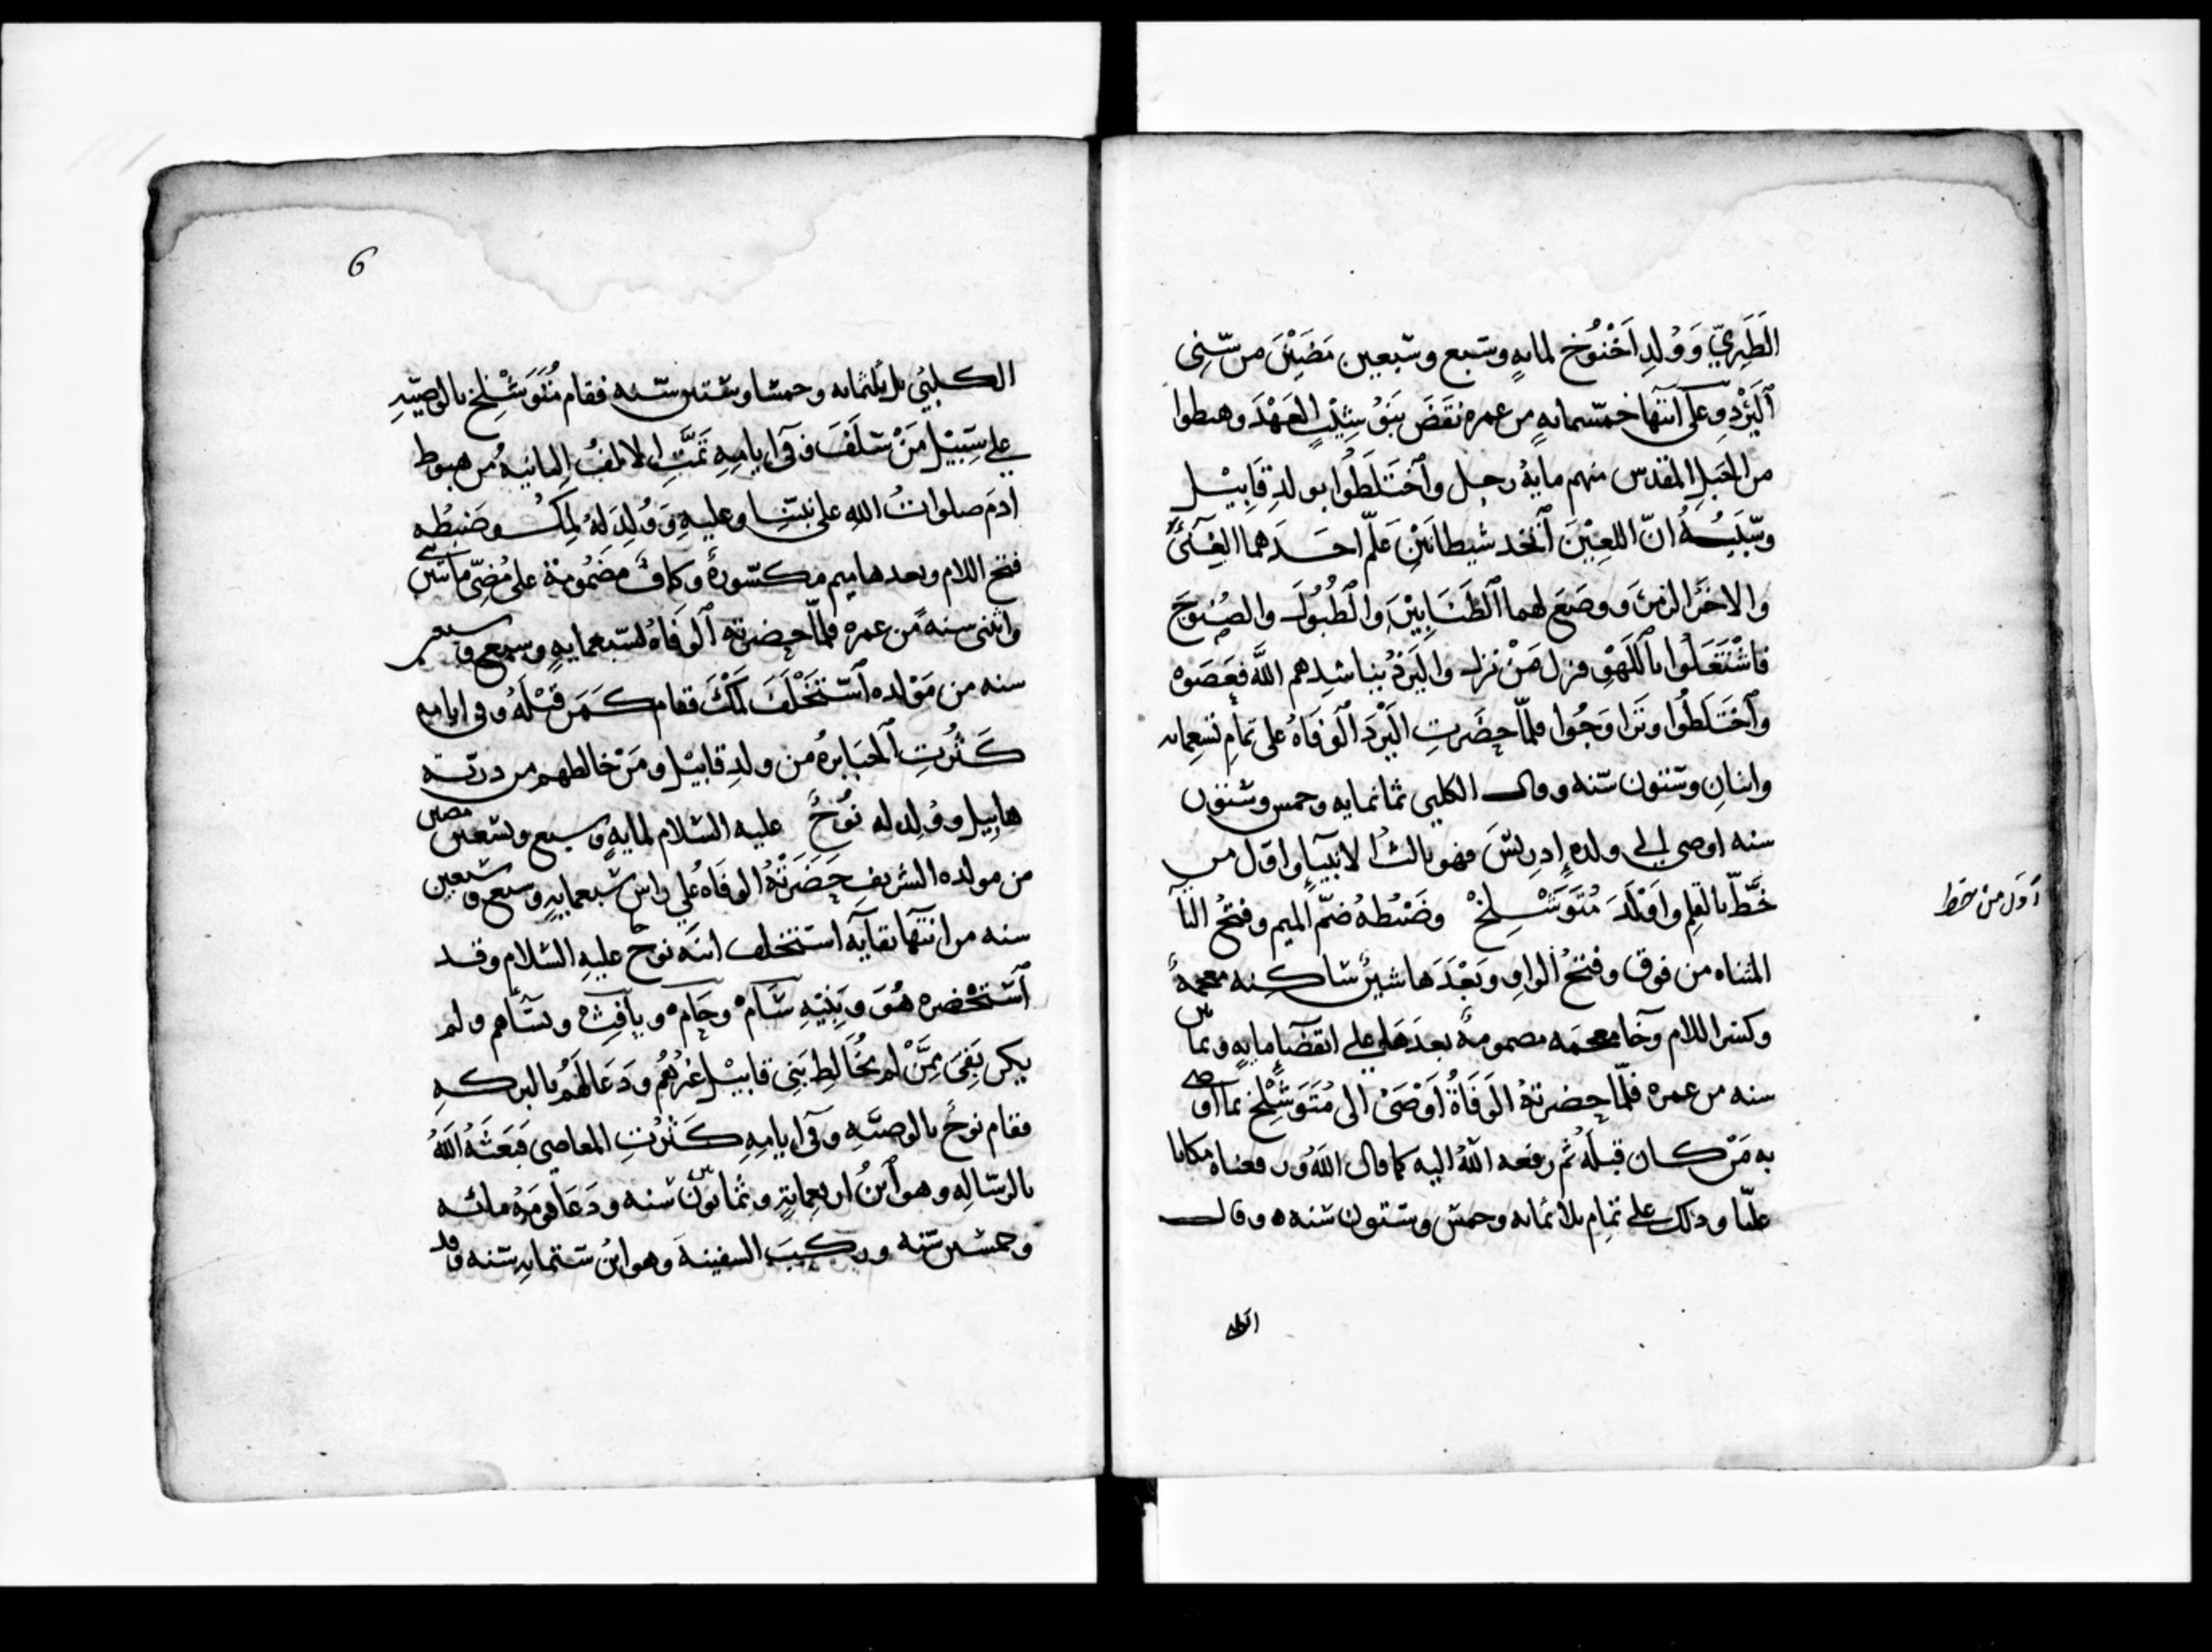 الطَبَرِيّ وَوُلدِ اَخْنُوُخ لمايهٍ وسَبع وسَبعين مَضَيْنَ من سّنِى
اَليَرْدِ وعلى انتها خمسّمايهٍ من عمره نقَضَ بَنوُ شِيْثٍ العَهْدَ وهبطوا
من الجبَلِ المقدس منهم مايهُ رجل واَختَلَطُوا بولدِ قَابِيْل
وسّبَبُهُ انّ اللعِيْنَ اتّخد شيطانَيْنِ عَلّمَ احَدَهما الغِنَآءَ
والاخَرَ الزمْنَ ووضَعَ لهما الطَنَابِيْرَ والطُبُوْلَ والصُنُوجَ
فاشْتَغَلُوا باللَهْوِ فنزل مَنْ نزل واليَرْدُ يناشدهم اللهَ فعَصَوْه
واَختَلَطُوا وتَزاوَجُوا فلمّا حضَرتِ اليَرْدَ الوَفَاهُ على تمامِ تسعمايه
واثنانِ وستون سّنه وقال الكلبي ثمانمايه وخمس وستون
سنه اوصى الى ولده إِدرِيسَّ فهو ثالث الانبيآءِ واوّل من
خَطّ بالقلمِ واَوْلَدَ مُتَوَشْلِخْ وضَبْطُهُ ضمّ الميم وفتحُ التآ
المثناه من فوق وفتحُ الواوِ وبَعْدَها شينٌ ساكنه معجمهٌ
وكسر اللام وخآ معجمَه مضمومهٌ بعدَها على انقضآءِ مايهٍ وثمانين
سنه من عمره فلمّا حضرتهُ الوَفَاهُ اَوْصَىْ الى مُتَوَشْلِخ بما اوصى
به مَنْ كان قبلَهُ ثم رفعه اللهُ اليه كما قال اللهُ ورفعناه مكانا
عليّا وذلك على تمامِ ثلاثمايه وخمس وستون سَنه ه وقال
الكلبيُ
اَوّل من خطّ
6
الكلبيُ بل ثلثمايه وخمسا وستين سّنه فقام مُتَوَشْلِخ بالوصيّهِ
على سَبيْلِ مَنْ سَلَفَ وفى ايامِهِ تَمَّتِ الالفُ الثانيهُ من هبوط
ادمَ صلواتُ اللهِ على نبيّنا وعليهِ وَوُلِدَ لهُ لَمِكُ وضَبطُه
فتح اللام وبعدها ميم مكسّورهٌ وكافٌ مضمُومهٌ على مُضِىّ مائتى
واثنى سنهً من عمره فلمّا حضرتهُ الوَفَاهُ لسّبعمايهٍ وسبع وسبعين
سنه من مَوْلده اَستّخْلَفَ لَمَكَ فقام كَمَن قَبْلَهُ وفى ايامهِ
كَثُرتِ الجبَابرهُ من ولدِ قابيْل ومَنْ خالطهم من ذريّه
هابيل ووُلد له نُوحٌ عليه السَّلام لمايهٍ وسبع وتسّعين مضين
من مولده الشريفِ حَضَرَتْهُ الوفَاهُ على راس سَبعمايهٍ وسبع وسَبعين
سنه من انتهآ بقايه استخلف ابنَه نوح عليهِ السَّلام وقد
اَستَحْضره هُوَ وبَنِيْهِ سَام وحَام ويافِث ونسَآهم ولم
يكن بَقِىَ مِمَّنْ لم يُخَالِط بَنِى قابيْل غيْرُهُم ودَعَا لهُمْ بالبركهِ
فقام نوحٌ بالوصيَّهِ وفى ايامِهِ كَثُرتِ المعاصى فبَعَثَهُ اللهُ
بالرسّالهِ وهو اَبنُ اربعمايهٍ وثمانونَ سَنه ودَعَا قَومَهُ مائه
وخمسّين سّنه وركبَ السفينهَ وهو ابنُ ستمايهِ سَنه وقد